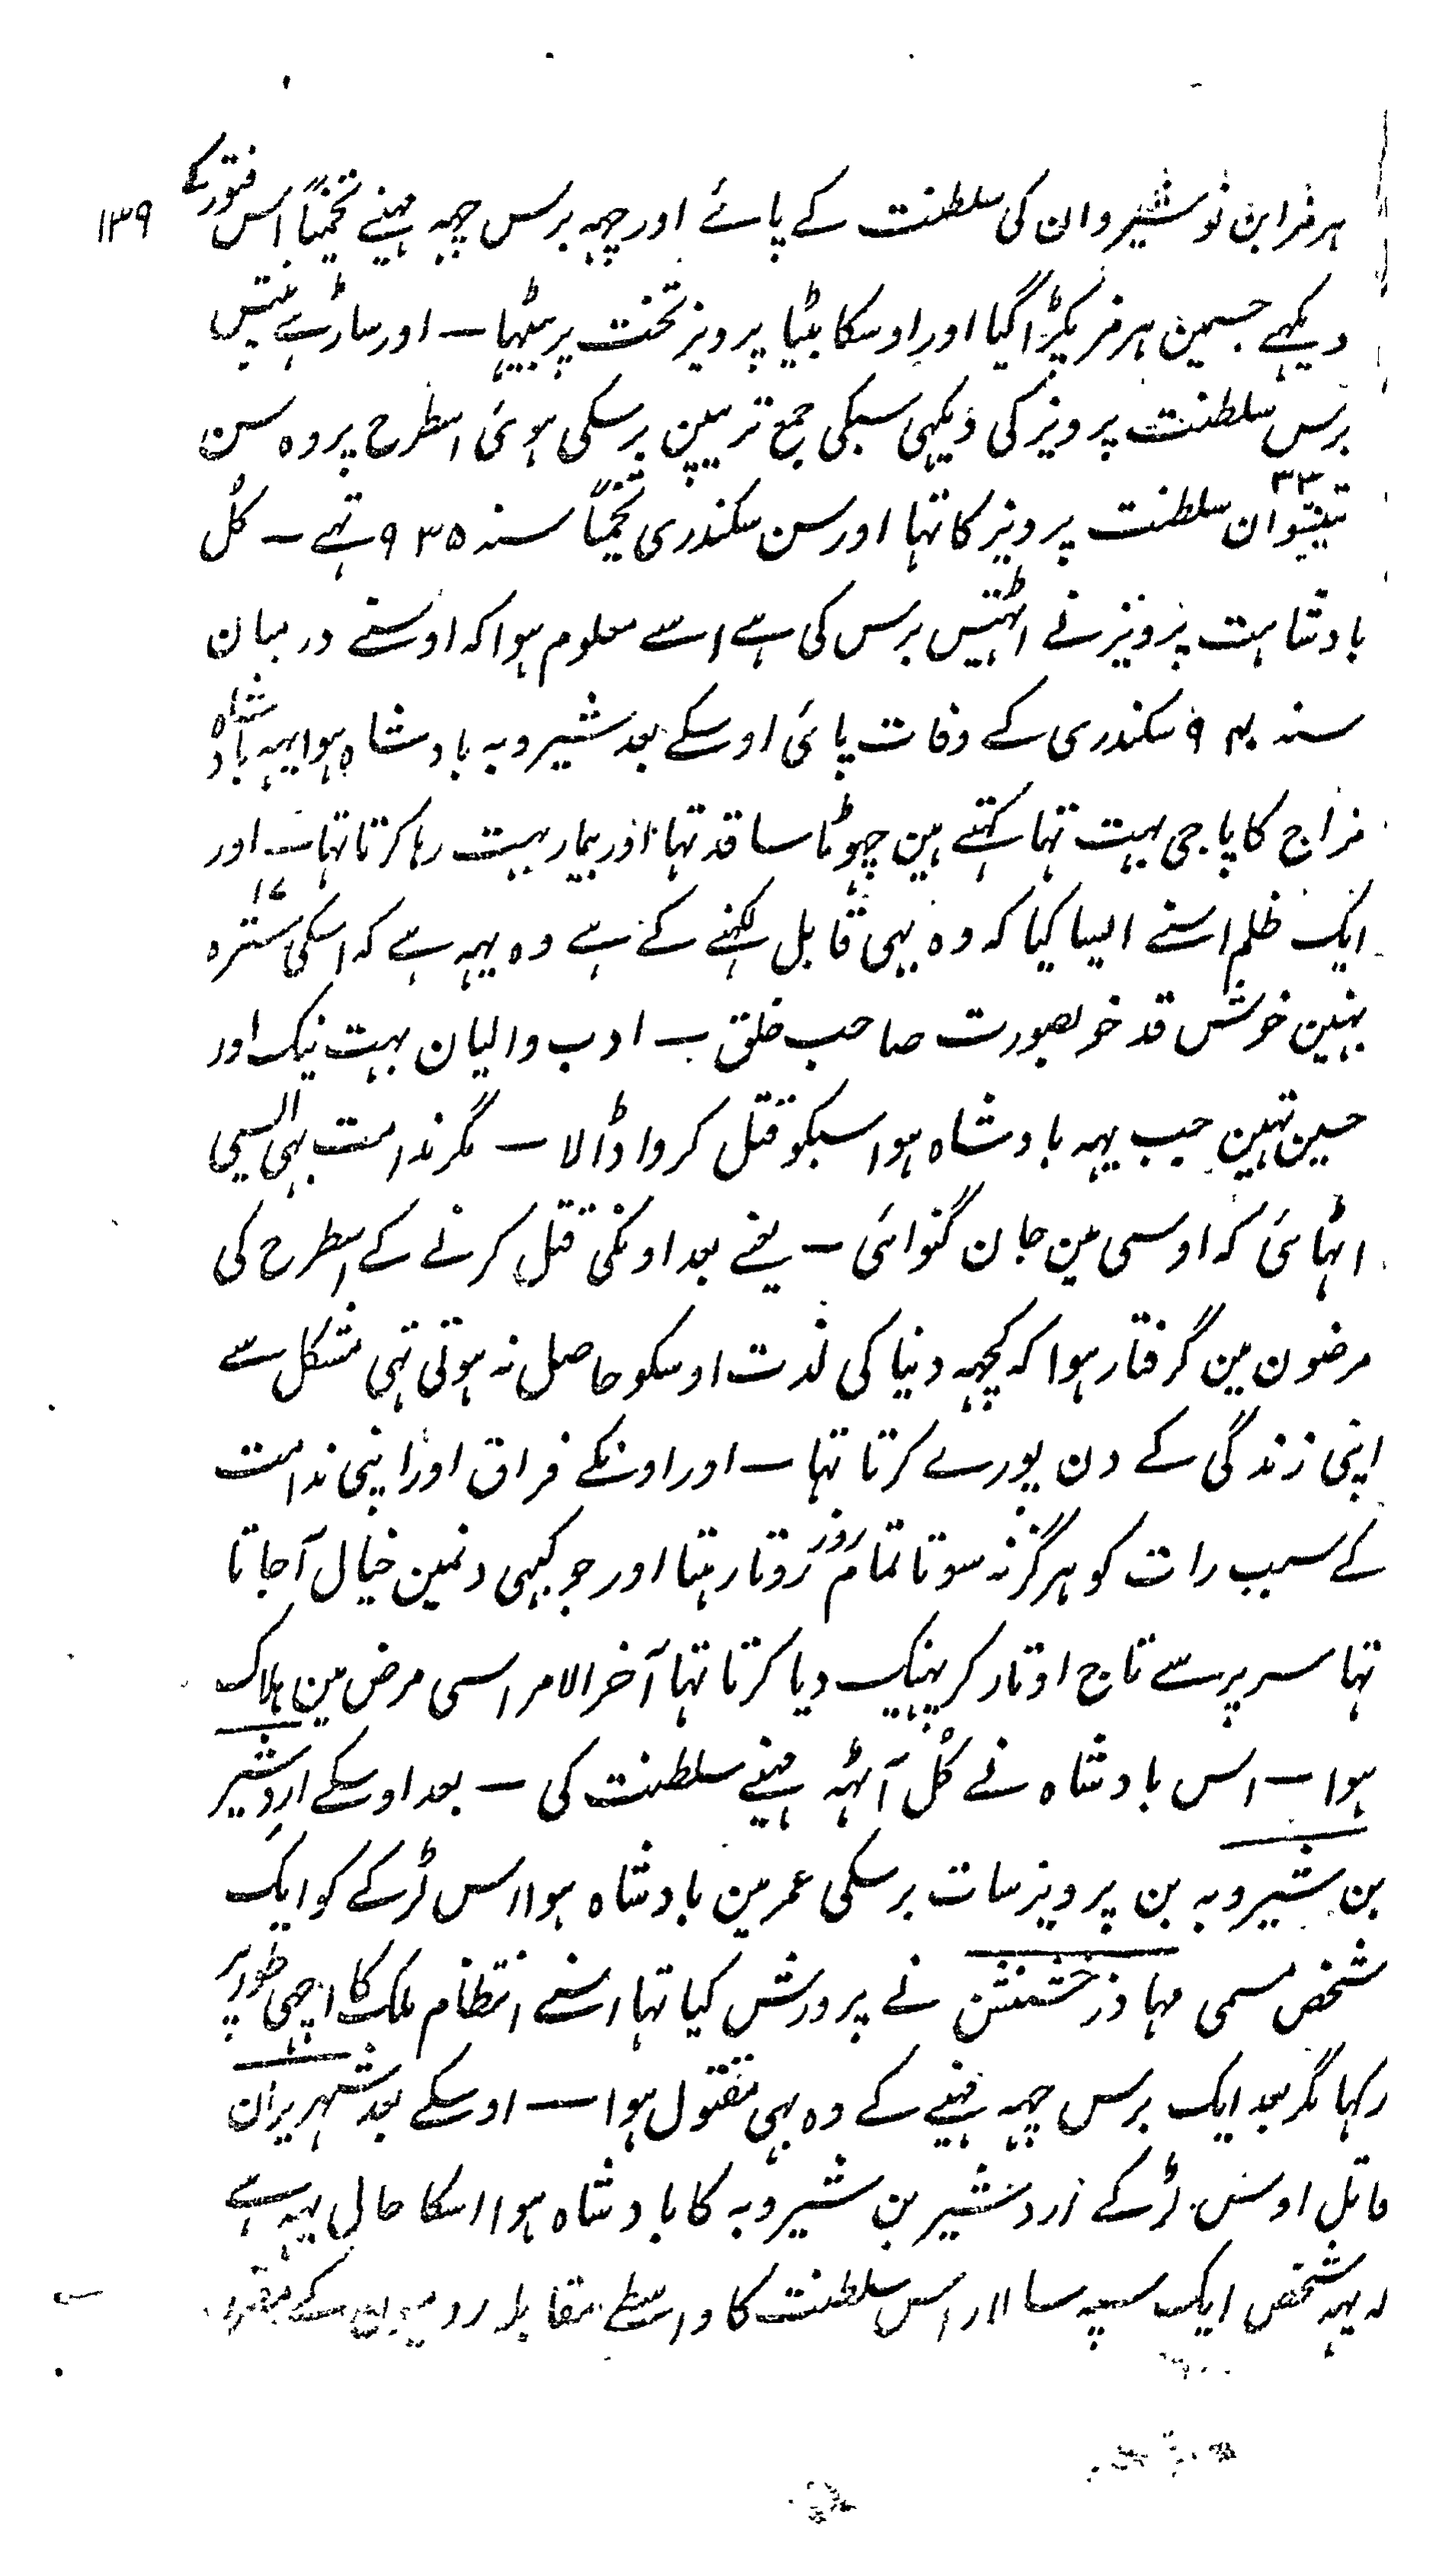 ۱۳۹
ہرمزابن نوشیروان کی سلطنت کے پائے اور چہہ برس چہہ مہینے تخمیناً اس فتور کے
دیکہے جسمین ہرمز پکڑا گیا اور اوسکا بیٹا پرویز تخت پر بیٹہا ـ اور ساڑہے بتیس
برس سلطنت پرویز کی دیکہی سبکی جمع ترپپن برسکی ہوئی اسطرح پر وہ سن
تینتیسوان ۳۳ سلطنت پرویز کا تہا اور سن سکندری تخمیناً سنہ ۹۳۵ تہے ـ کُل
بادشاہت پرویز نے اٹہتیس برس کی ہے اسے معلوم ہوا کہ اوسنے درمیان
سنہ ۹۴۰ سکندری کے وفات پائی اوسکے بعد شیرویہ بادشاہ ہوا یہہ بادشاہ
مزاج کا پاجی بہت تہا کہتے ہین چہوٹا سا قد تہا اور بیمار بہت رہا کرتا تہا ـ اور
ایک ظلم اسنے ایسا کیا کہ وہ بہی قابل لکہنے کے ہے وہ یہہ ہے کہ اسکی سترہ ۱۷
بہنین خوش قد خوبصورت صاحب خلق ـ ادب والیان بہت نیک اور
حسین تہین جب یہہ بادشاہ ہوا سبکو قتل کروا ڈالا ـ مگر ندامت بہی ایسی
اٹہائی کہ اوسی مین جان گنوائی ـ یعنے بعد اونکی قتل کرنے کے اسطرح کی
مرضون مین گرفتار ہوا کہ کچہہ دنیا کی لذت اوسکو حاصل نہ ہوتی تہی مشکل سے
اپنی زندگی کے دن پورے کرتا تہا ـ اور اونکے فراق اور اپنی ندامت
کے سبب رات کو ہرگز نہ سوتا تمام روز روتا رہتا اور جو کبہی دلمین خیال آجاتا
تہا سر پر سے تاج اوتار کر پہینک دیا کرتا تہا آخر الامر اسی مرض مین ہلاک
ہوا ـ اس بادشاہ نے کُل آٹہہ مہینے سلطنت کی ـ بعد اوسکے اردشیر
بن شیرویہ بن پرویز سات برسکی عمر مین بادشاہ ہوا اس لڑکے کو ایک
شخص مسمی مہاذرخشنش نے پرورش کیا تہا اسنے انتظام ملک کا اچہی طور پر
رکہا مگر بعد ایک برس چہہ مہینے کے وہ بہی مقتول ہوا ـ اوسکے بعد شہریران
قاتل اوس لڑکے اردشیر بن شیرویہ کا بادشاہ ہوا اسکا حال یہہ ہے
کہ یہہ شخص ایک سپہ سالار اس سلطنت کا واسطے مقابلہ رومیون کے مقرر